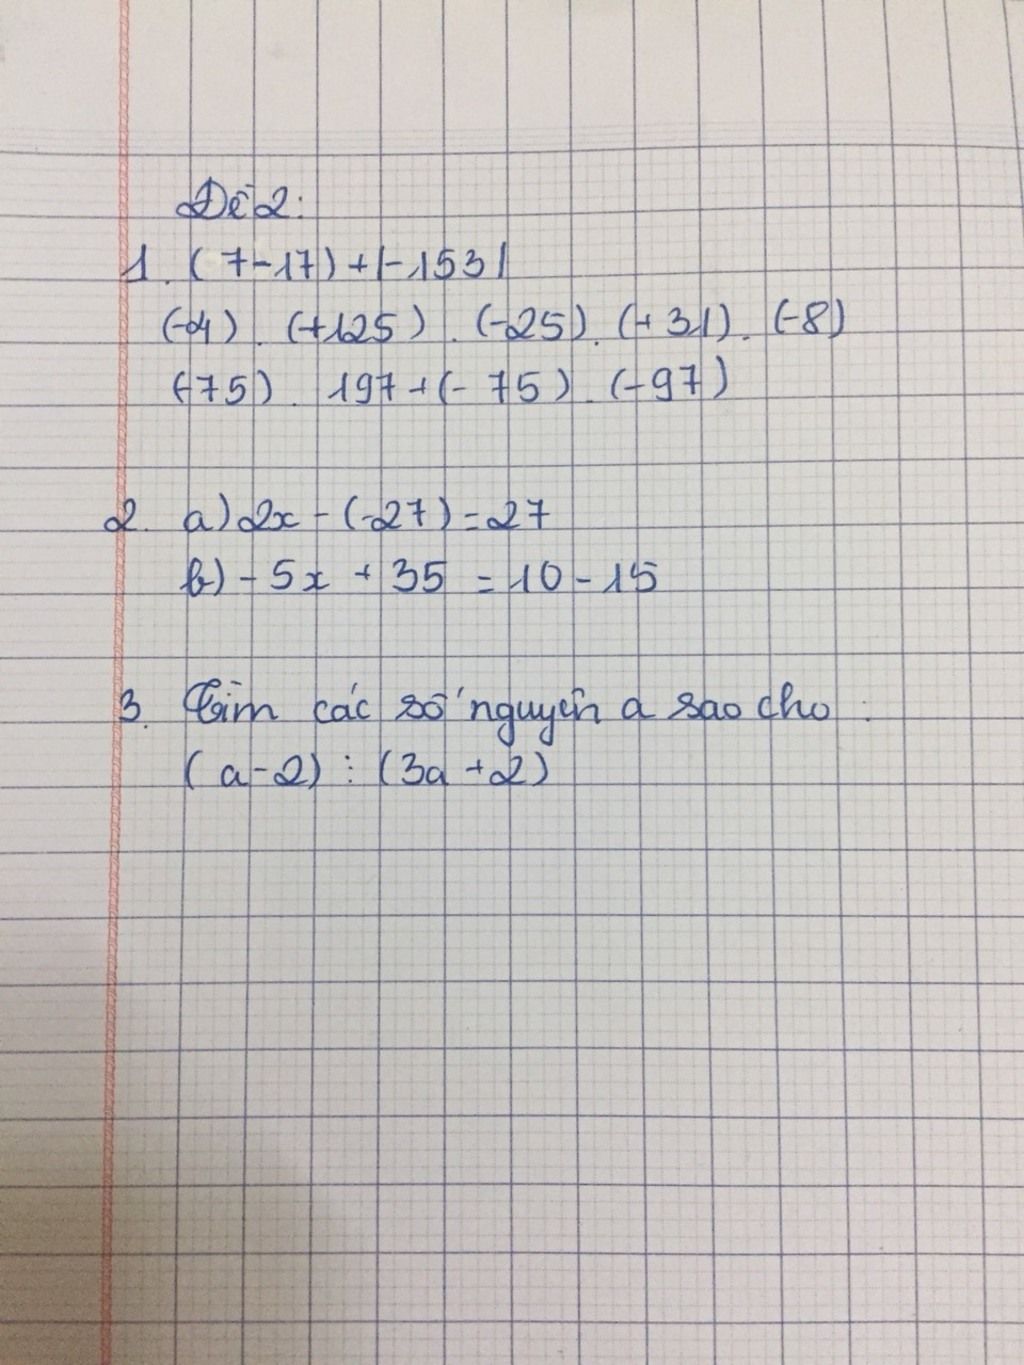 Đề 2:
1. (7-17) + |-153|
(-4) . (+125) . (-25) . (+31) . (-8)
(-75) . 197 + (-75) . (-97)
2. a) 2x - (-27) = 27
b) - 5x + 35 = 10 - 15
3. Tìm các số nguyên a sao cho :
(a-2) ⋮ (3a+2)